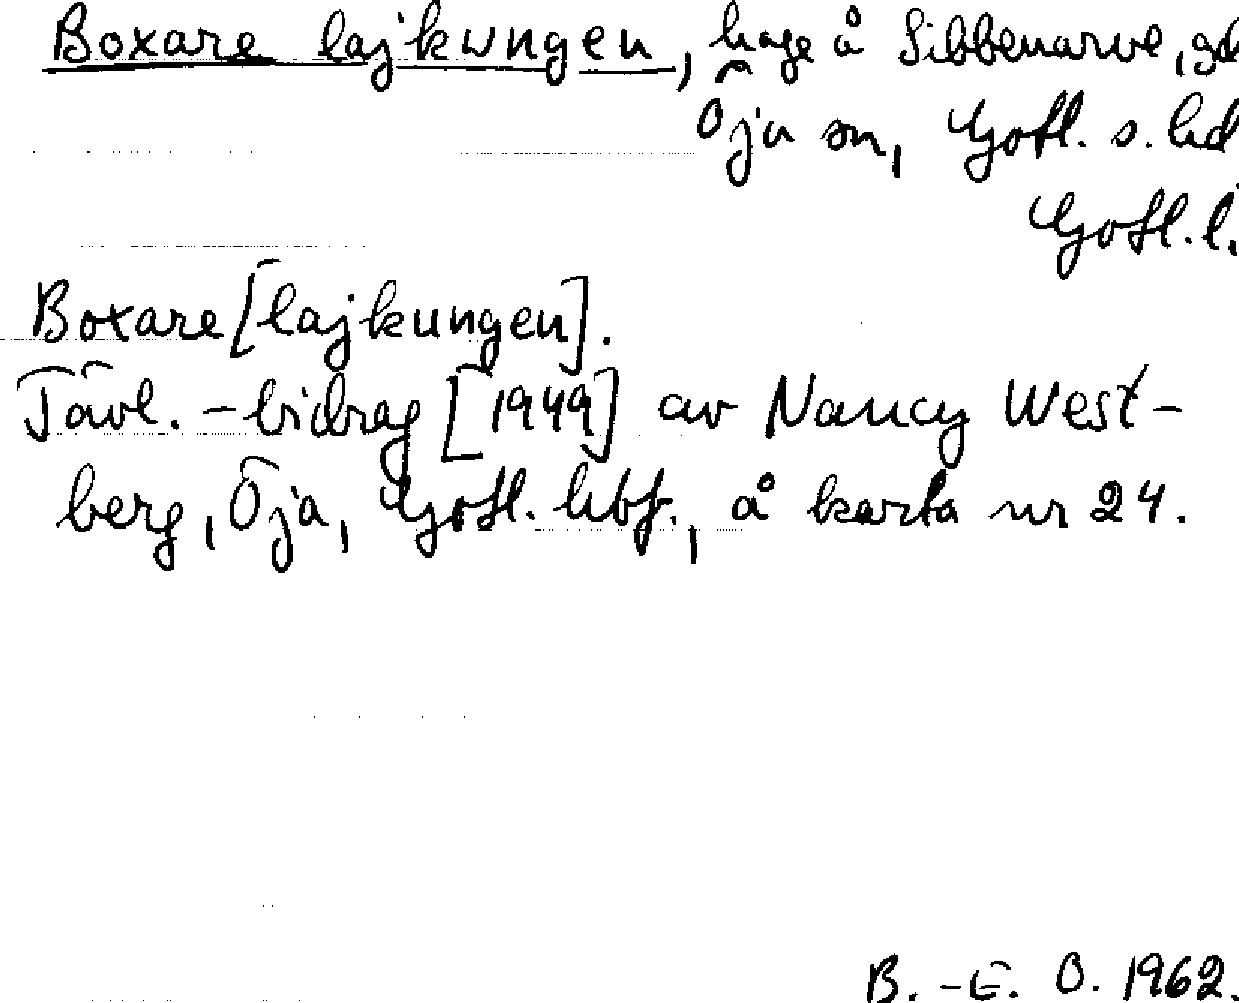 Boxare lajkungen, hage å Sibbenarve, gd
Öja sn, Gotl. s. hd
Gotl. l.
Boxare [lajkungen].
Tävl.-bidrag [1949] av Nancy West-
berg, Öja, Gotl. hbf., å karta nr 24.
B.-E. O. 1962.